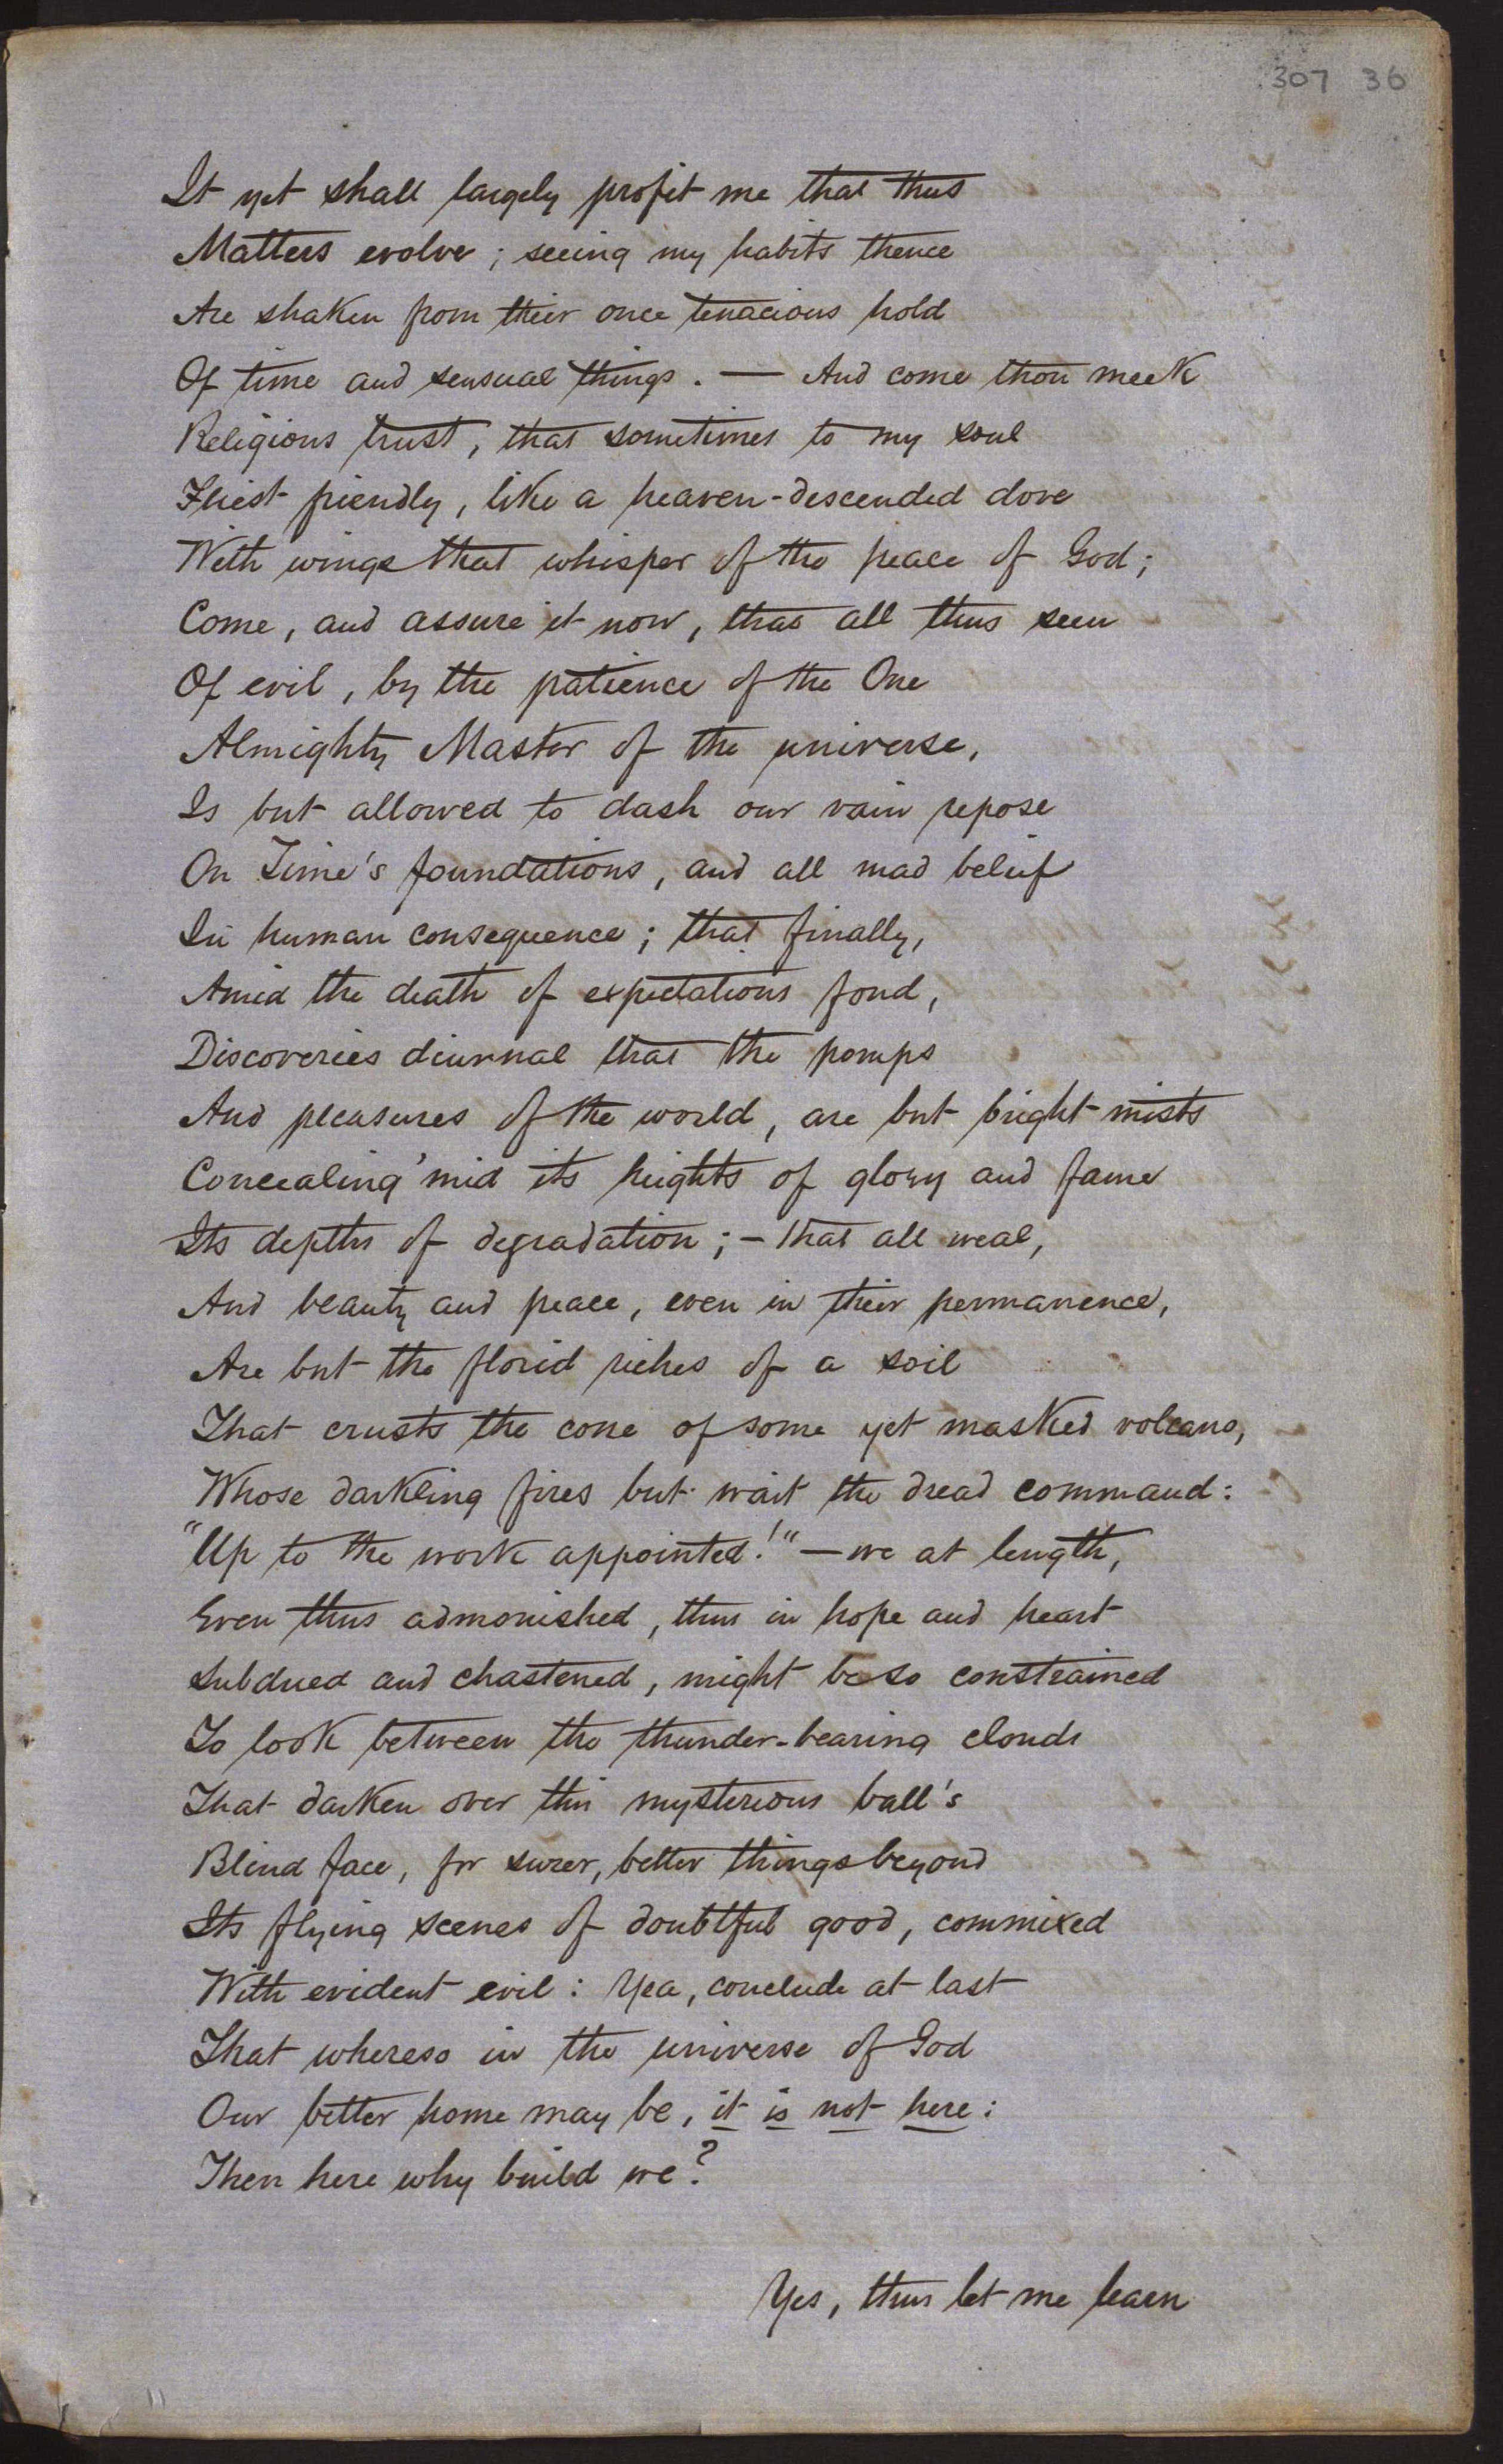 307 36
It yet shall largely profit me that thus
Matters evolve; seeing my habits thence
Are shaken from their once tenacious hold
Of time and sensual things. — And come thou meek
Religious trust, that sometimes to my soul
Fliest friendly, like a heaven-descended dove
With wings that whisper of the peace of God;
Come, and assure it now, that all thus seen
Of evil, by the patience of the One
Almighty Master of the universe,
Is but allowed to dash our vain repose
On Time's foundations, and all mad belief
In human consequence; that finally,
Amid the death of expectations fond,
Discoveries diurnal that the pomps
And pleasures of the world, are but bright mists
Concealing 'mid its heights of glory and fame
Its depths of degradation; – that all weal,
And beauty and peace, even in their permanence,
Are but the florid riches of a soil
That crusts the cone of some yet masked volcano,
Whose darkling fires but wait the dread command:
"Up to the work appointed!" — we at length,
Even thus admonished, thus in hope and heart
Subdued and chastened, might be so constrained
To look between the thunder-bearing clouds
That darken over this mysterious ball's
Blind face, for surer, better things beyond
Its flying scenes of doubtful good, commixed
With evident evil: Yea, conclude at last
That whereso in the universe of God
Our better home may be, it is not here:
Then here why build we?
Yes, thus let me learn